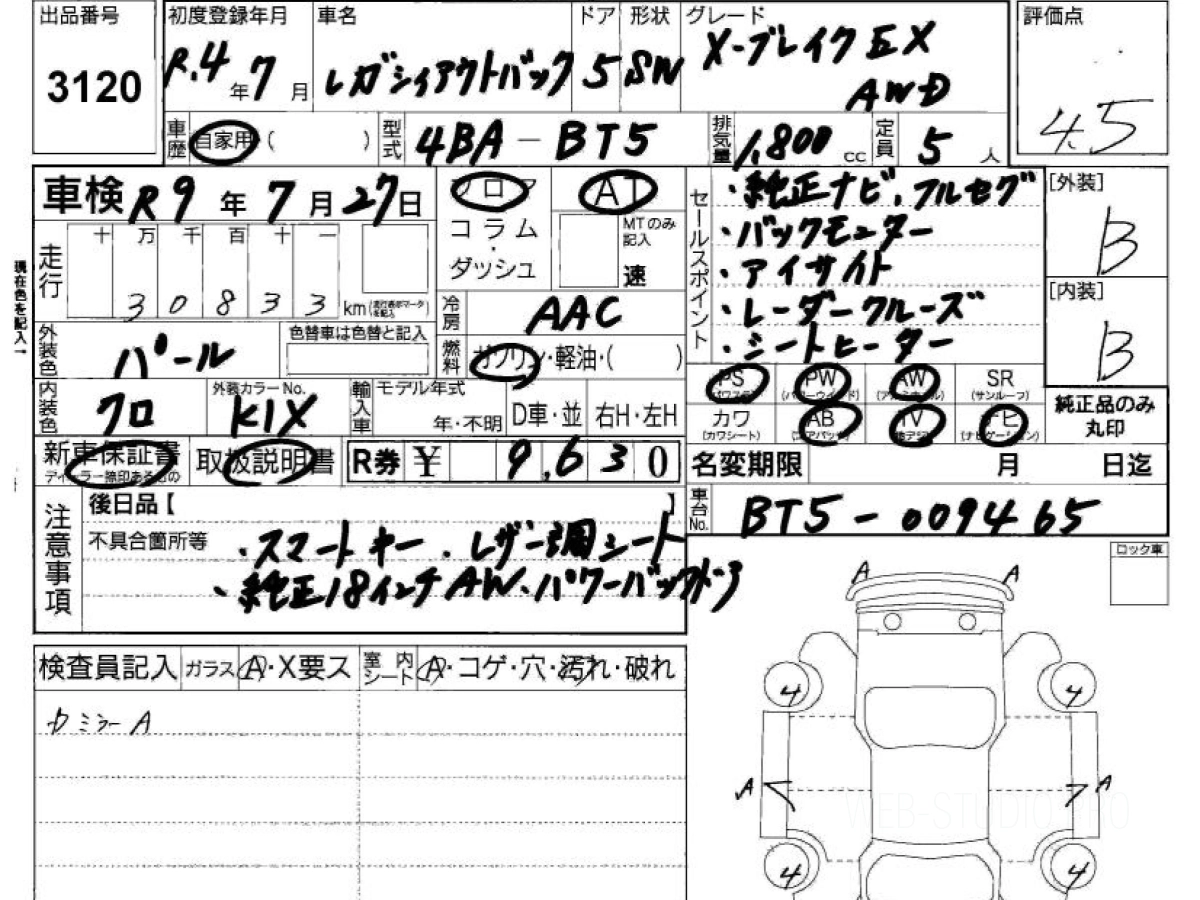 出品番号
3120
初度登録年月
R.4年7月
車名
レガシィアウトバック
ドア
5
形状
SW
グレード
X-ブレイクEX
AWD
評価点
4.5
車歴
自家用( )
型式
4BA-BT5
排気量
1,800cc
定員
5人
車検 R9年7月27日
走行
十万千百十一
30833
km(走行表示マークを記入)
現在色を記入→
フロア
コラム
・
ダッシュ
AT
MTのみ記入
速
冷房
AAC
燃料
ガソリン・軽油・( )
セールスポイント
・純正ナビ、フルセグ
・バックモニター
・アイサイト
・レーダークルーズ
・シートヒーター
[外装]
B
[内装]
B
外装色
パール
色替車は色替と記入
内装色
クロ
外装カラーNo.
K1X
輸入車
モデル年式
年・不明
D車・並
右H・左H
PS
(パワステ)
PW
(パワーウインド)
AW
(アルミホイル)
SR
(サンルーフ)
カワ
(カワシート)
AB
(エアバッグ)
TV
(地デジ)
ナビ
(ナビゲーション)
純正品のみ
丸印
新車保証書
ディーラー捺印あるもの
取扱説明書
R券 ¥ 9,630
名変期限 月 日迄
車台No.
BT5-009465
注意事項
後日品【 】
不具合箇所等
・スマートキー ・レザー調シート
・純正18インチAW、パワーバックドア
ロック車
検査員記入
ガラス
A・X要ス
室内シート
A・コゲ・穴・汚れ・破れ
ミラーA
A A
4 4
A A
4 4
WEB-STUDIO PRO